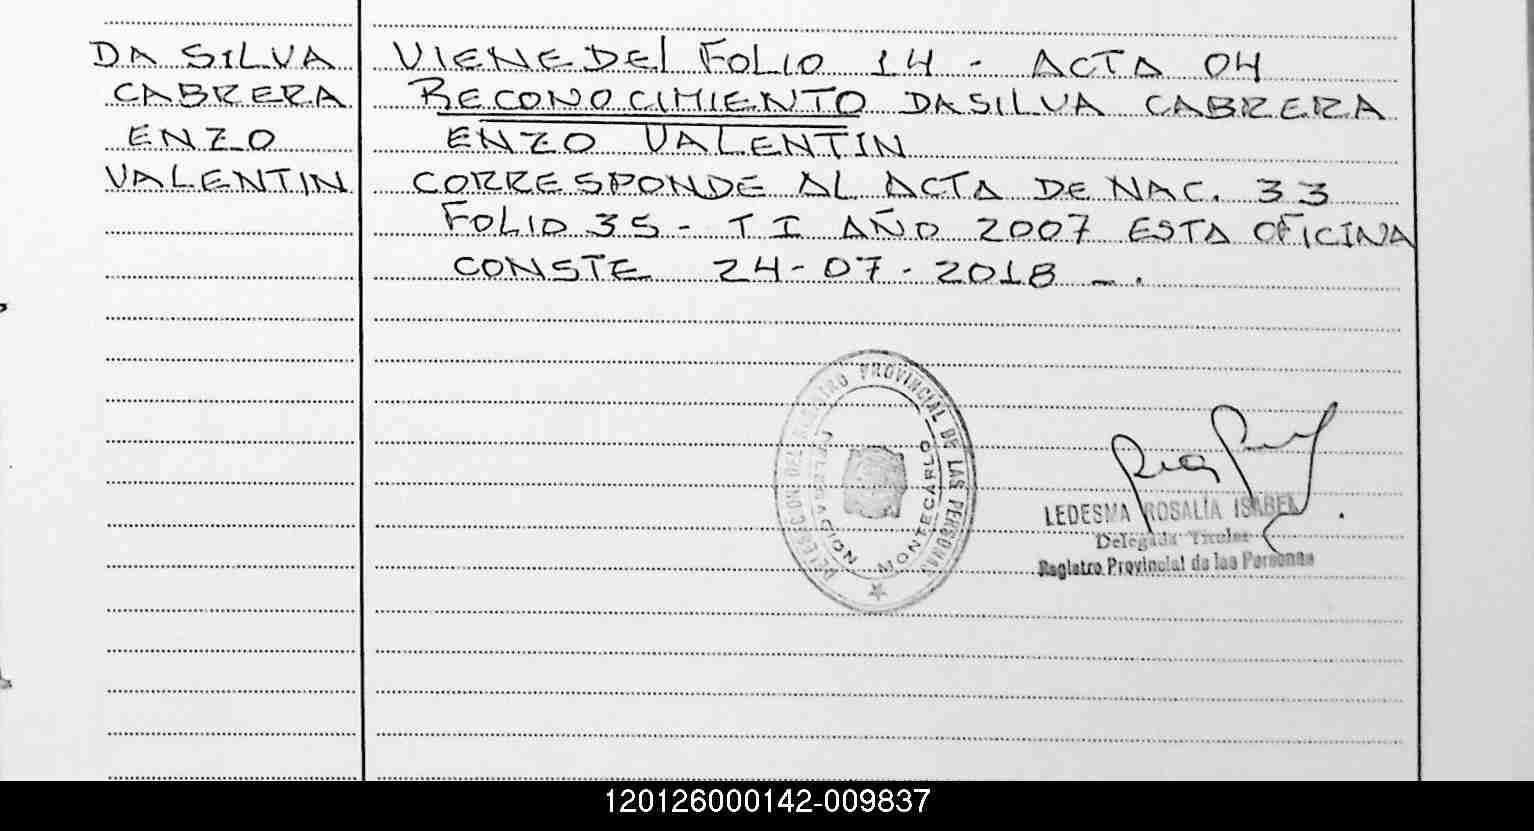 DA SILVA
CABRERA
ENZO
VALENTIN
VIENE DEL FOLIO 14 - ACTA 04
RECONOCIMIENTO DA SILVA CABRERA
ENZO VALENTIN
CORRESPONDE AL ACTA DE NAC. 33
FOLIO 35 - T I AÑO 2007 ESTA OFICINA
CONSTE 24-07-2018 -.
DELEGACION DEL REGISTRO PROVINCIAL DE LAS PERSONAS
DELEGACION MONTECARLO
LEDESMA ROSALIA ISABEL
Delegada Titular
Registro Provincial de las Personas
120126000142-009837